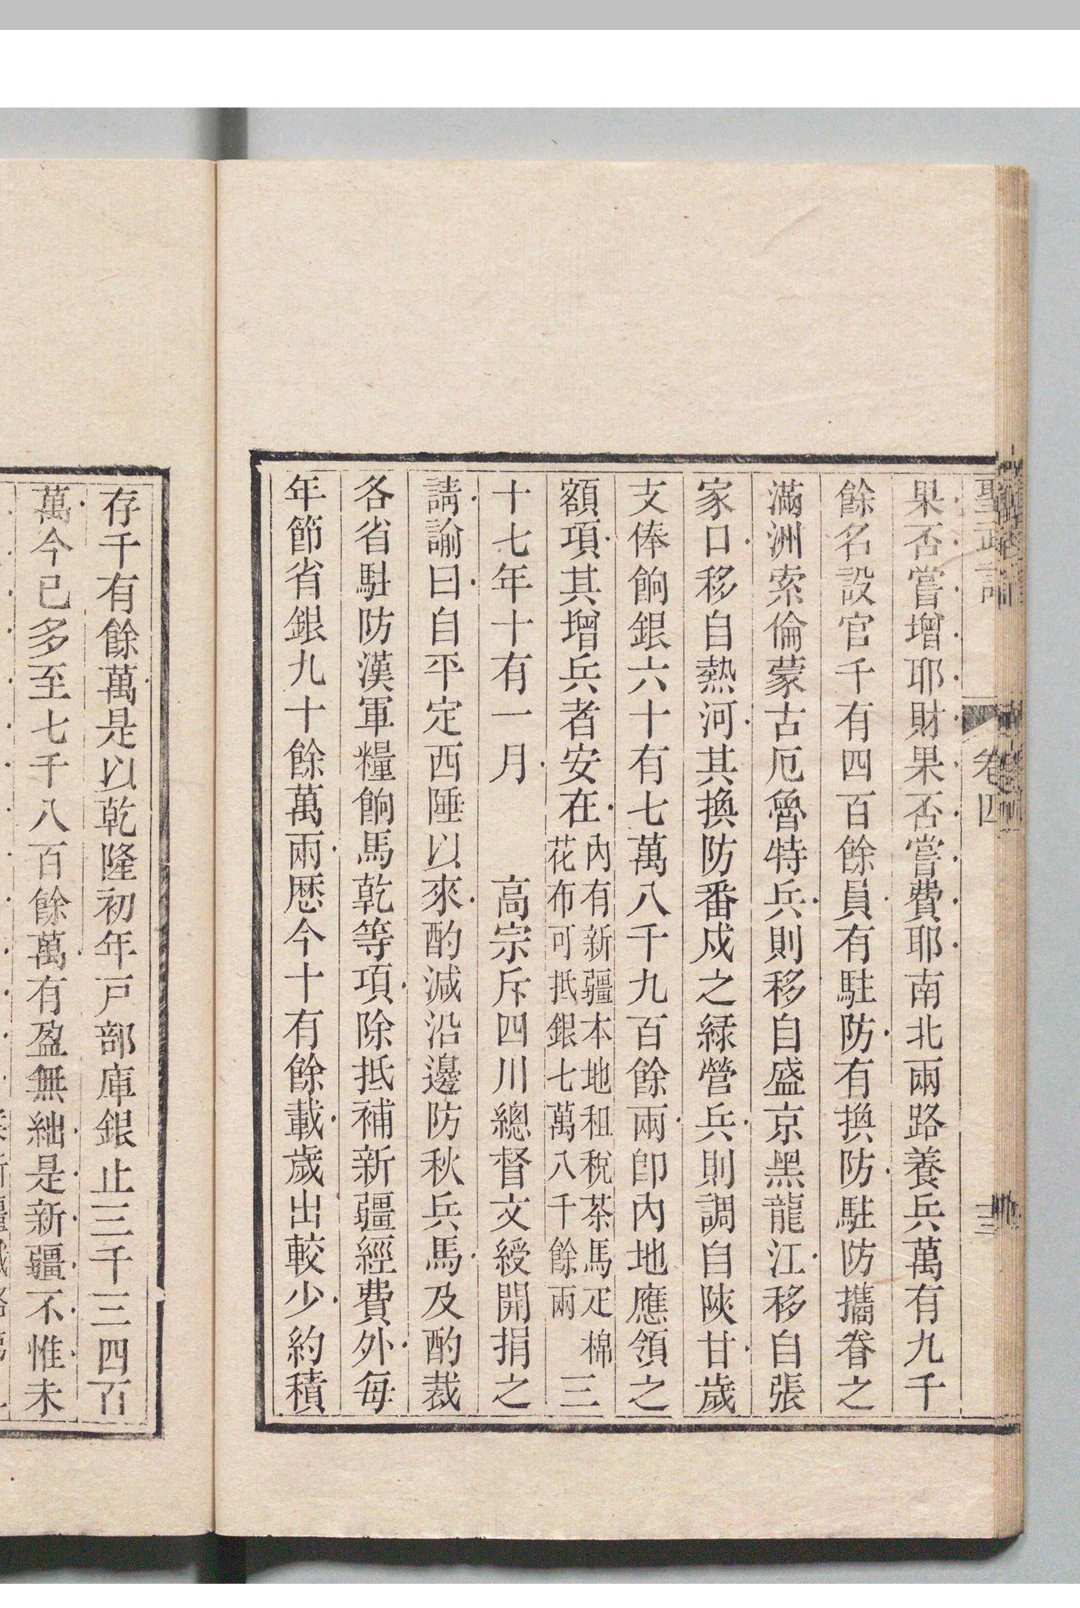 聖武記
卷四
果否嘗增耶財果否嘗費耶南北兩路養兵萬有九千
餘名設官千有四百餘員有駐防有換防駐防攜眷之
滿洲索倫蒙古厄魯特兵則移自盛京黑龍江移自張
家口移自熱河其換防番戍之緑營兵則調自陝甘歲
支俸餉銀六十有七萬八千九百餘兩卽內地應領之
額項其增兵者安在
內有新疆本地租稅茶馬疋棉
花布可抵銀七萬八千餘兩
三
十七年十有一月 高宗斥四川總督文綬開捐之
請諭曰自平定西陲以來酌減沿邊防秋兵馬及酌裁
各省駐防漢軍糧餉馬乾等項除抵補新疆經費外每
年節省銀九十餘萬兩歷今十有餘載歲出較少約積
存千有餘萬是以乾隆初年戸部庫銀止三千三四百
萬今已多至七千八百餘萬有盈無絀是新疆不惟未